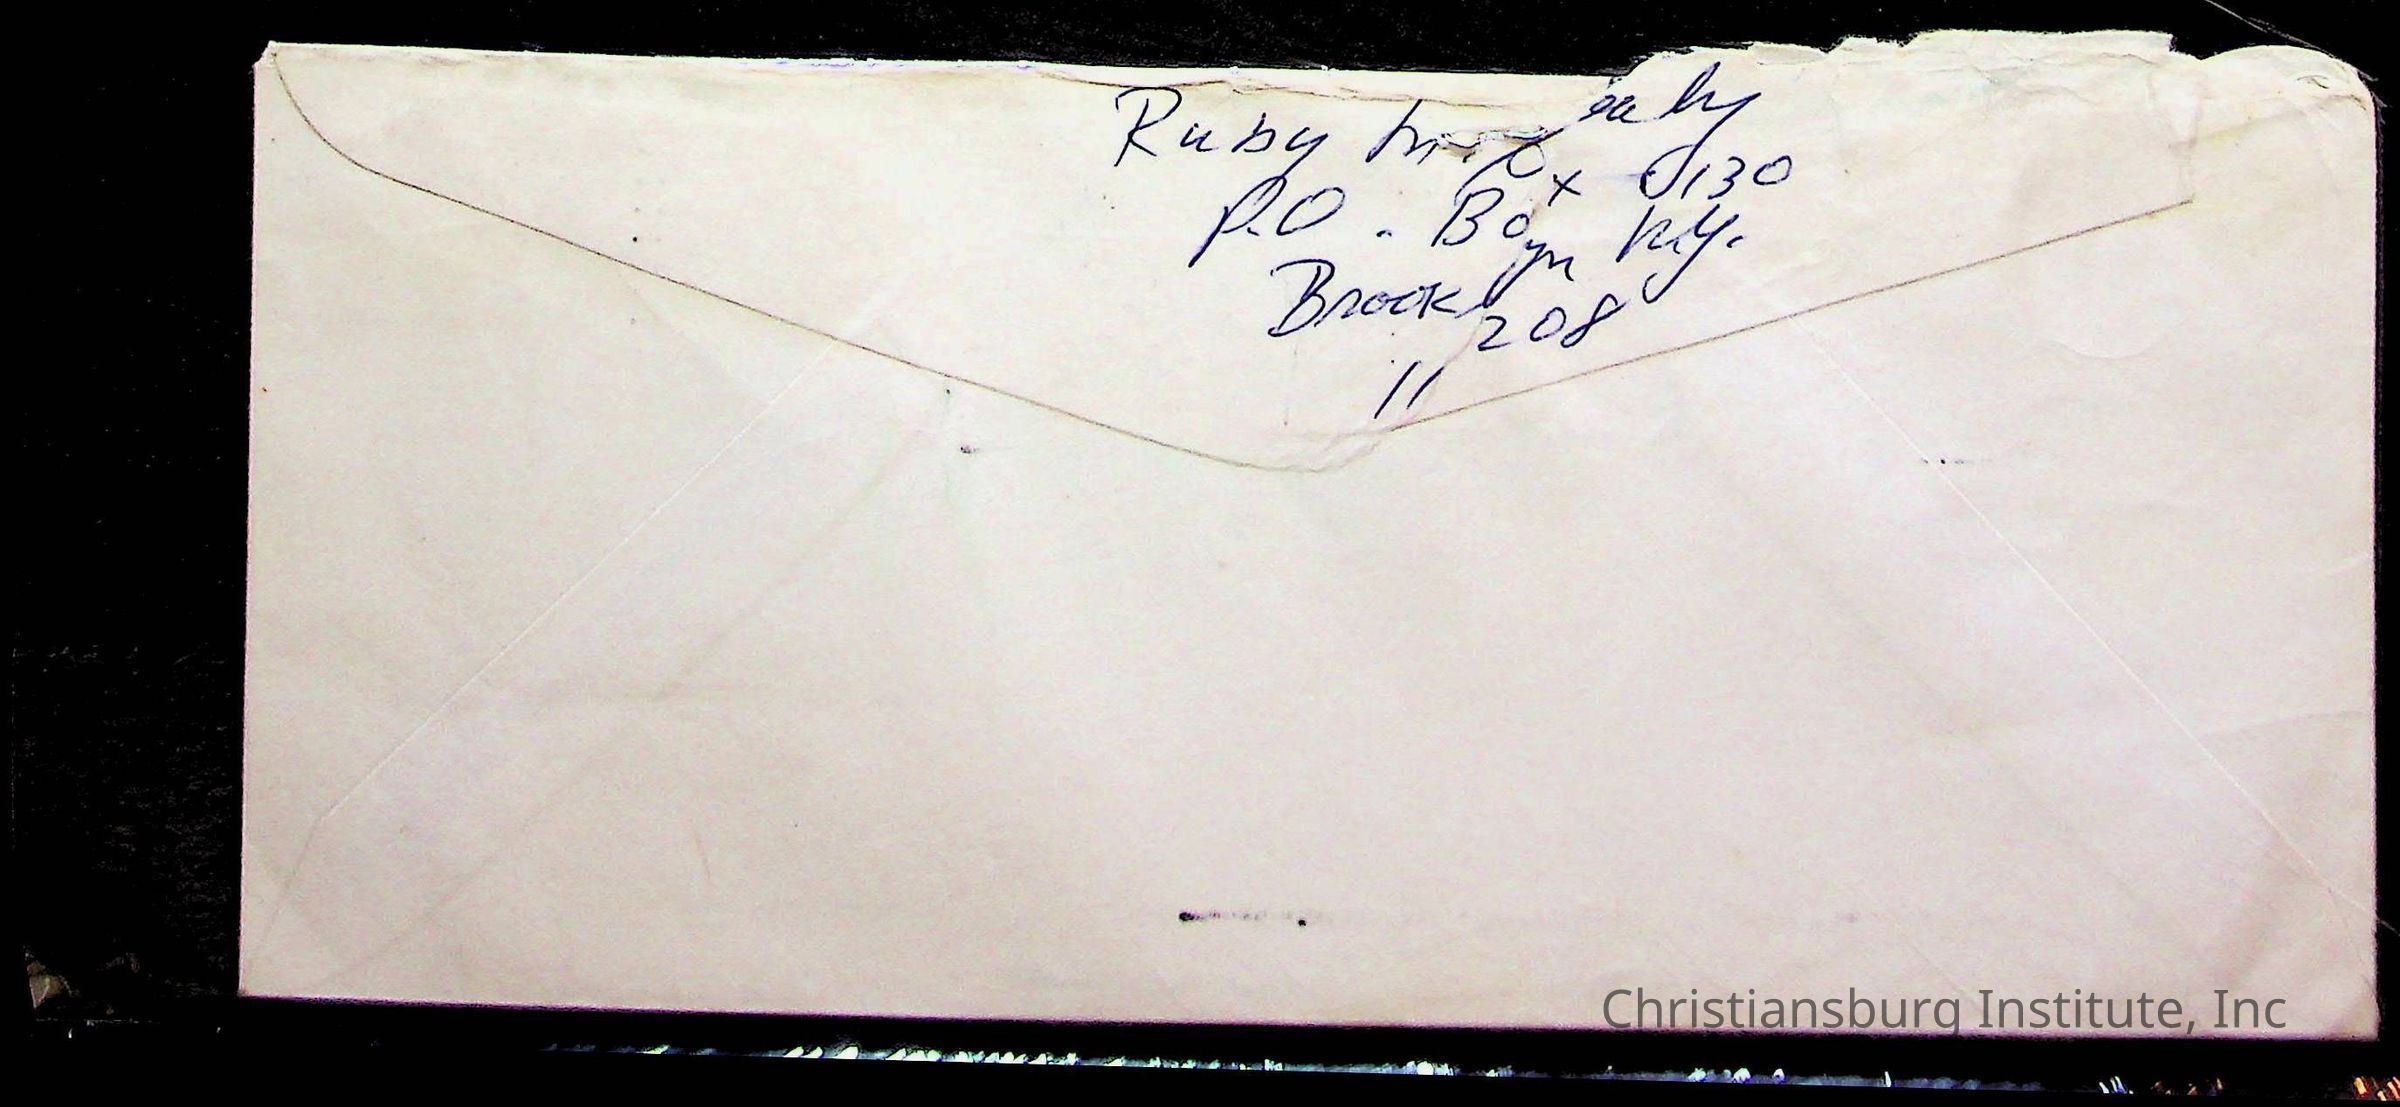 Ruby
P.O. Box 0130
Brooklyn N.Y.
11208
Christiansburg Institute, Inc